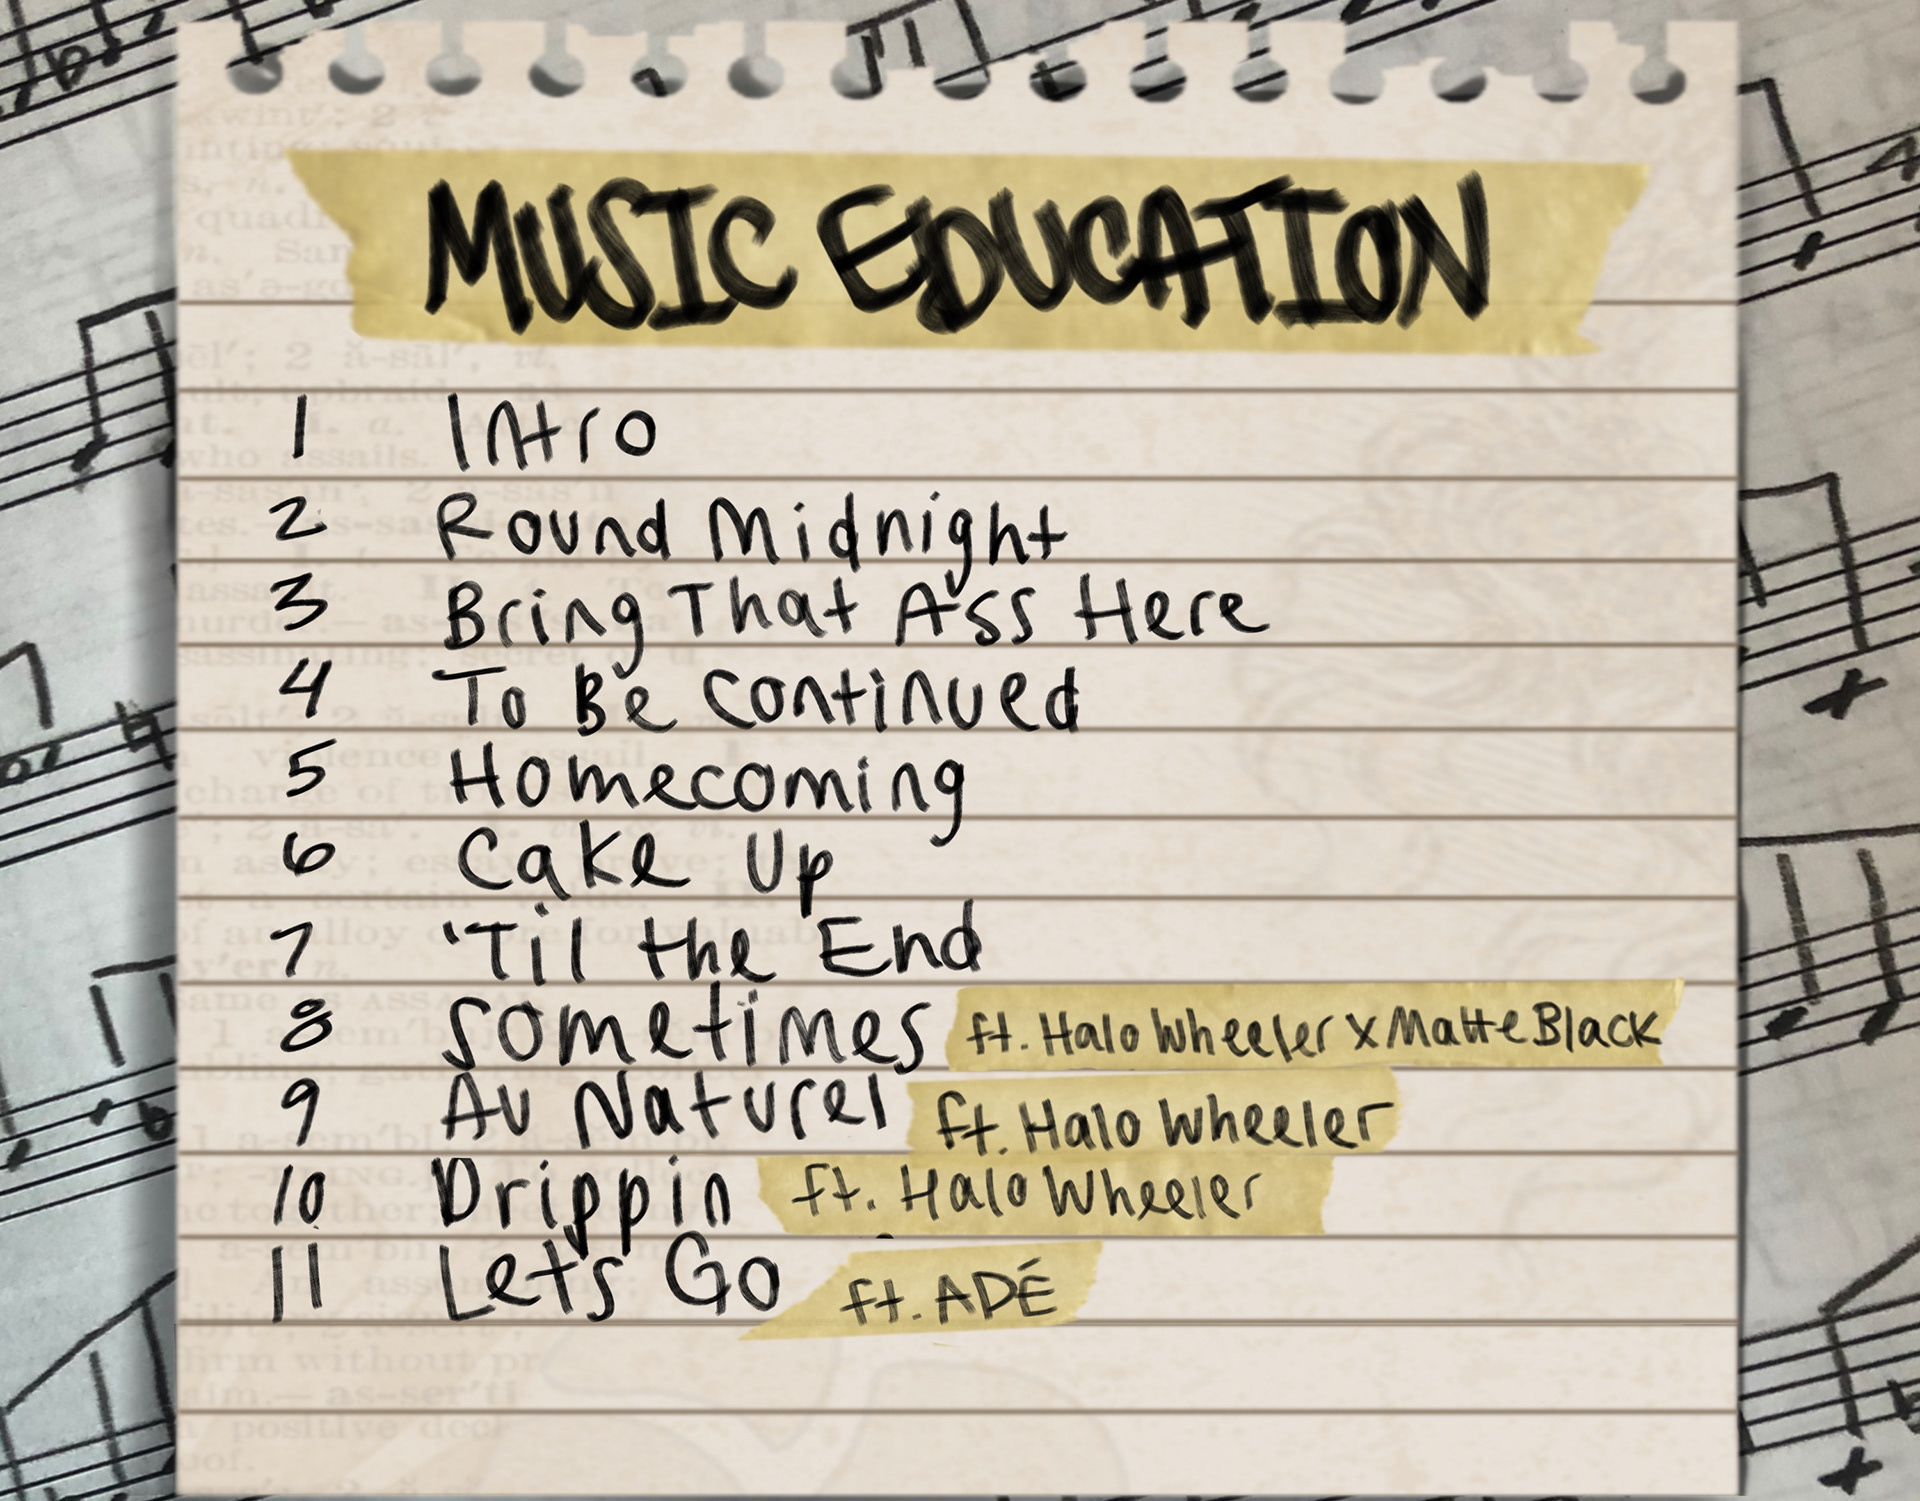 MUSIC EDUCATION
1 Intro
2 Round Midnight
3 Bring That Ass Here
4 To Be Continued
5 Homecoming
6 Cake Up
7 'Til the End
8 Sometimes ft. Halo Wheeler x Matte Black
9 Au Naturel ft. Halo Wheeler
10 Drippin ft. Halo Wheeler
11 Let's Go ft. ADÉ